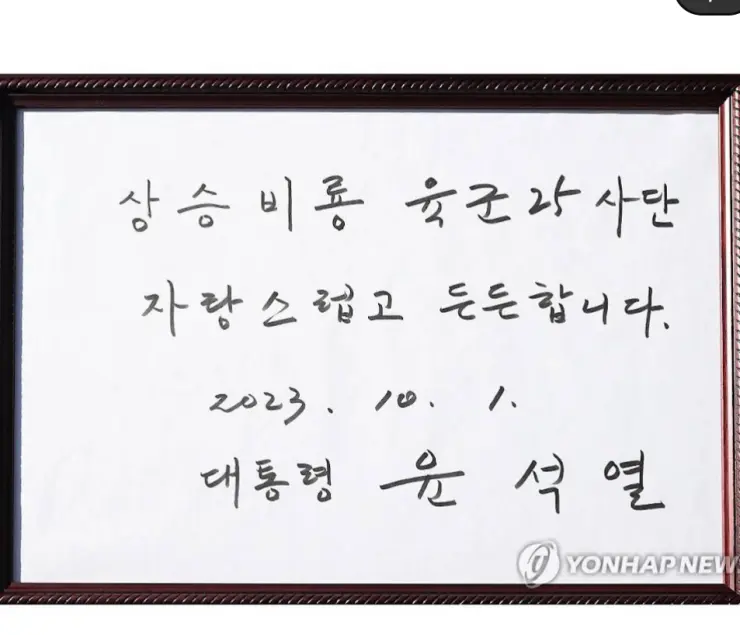 상승비룡 육군25사단
자랑스럽고 든든합니다.
2023. 10. 1.
대통령 윤석열
YONHAP NEWS